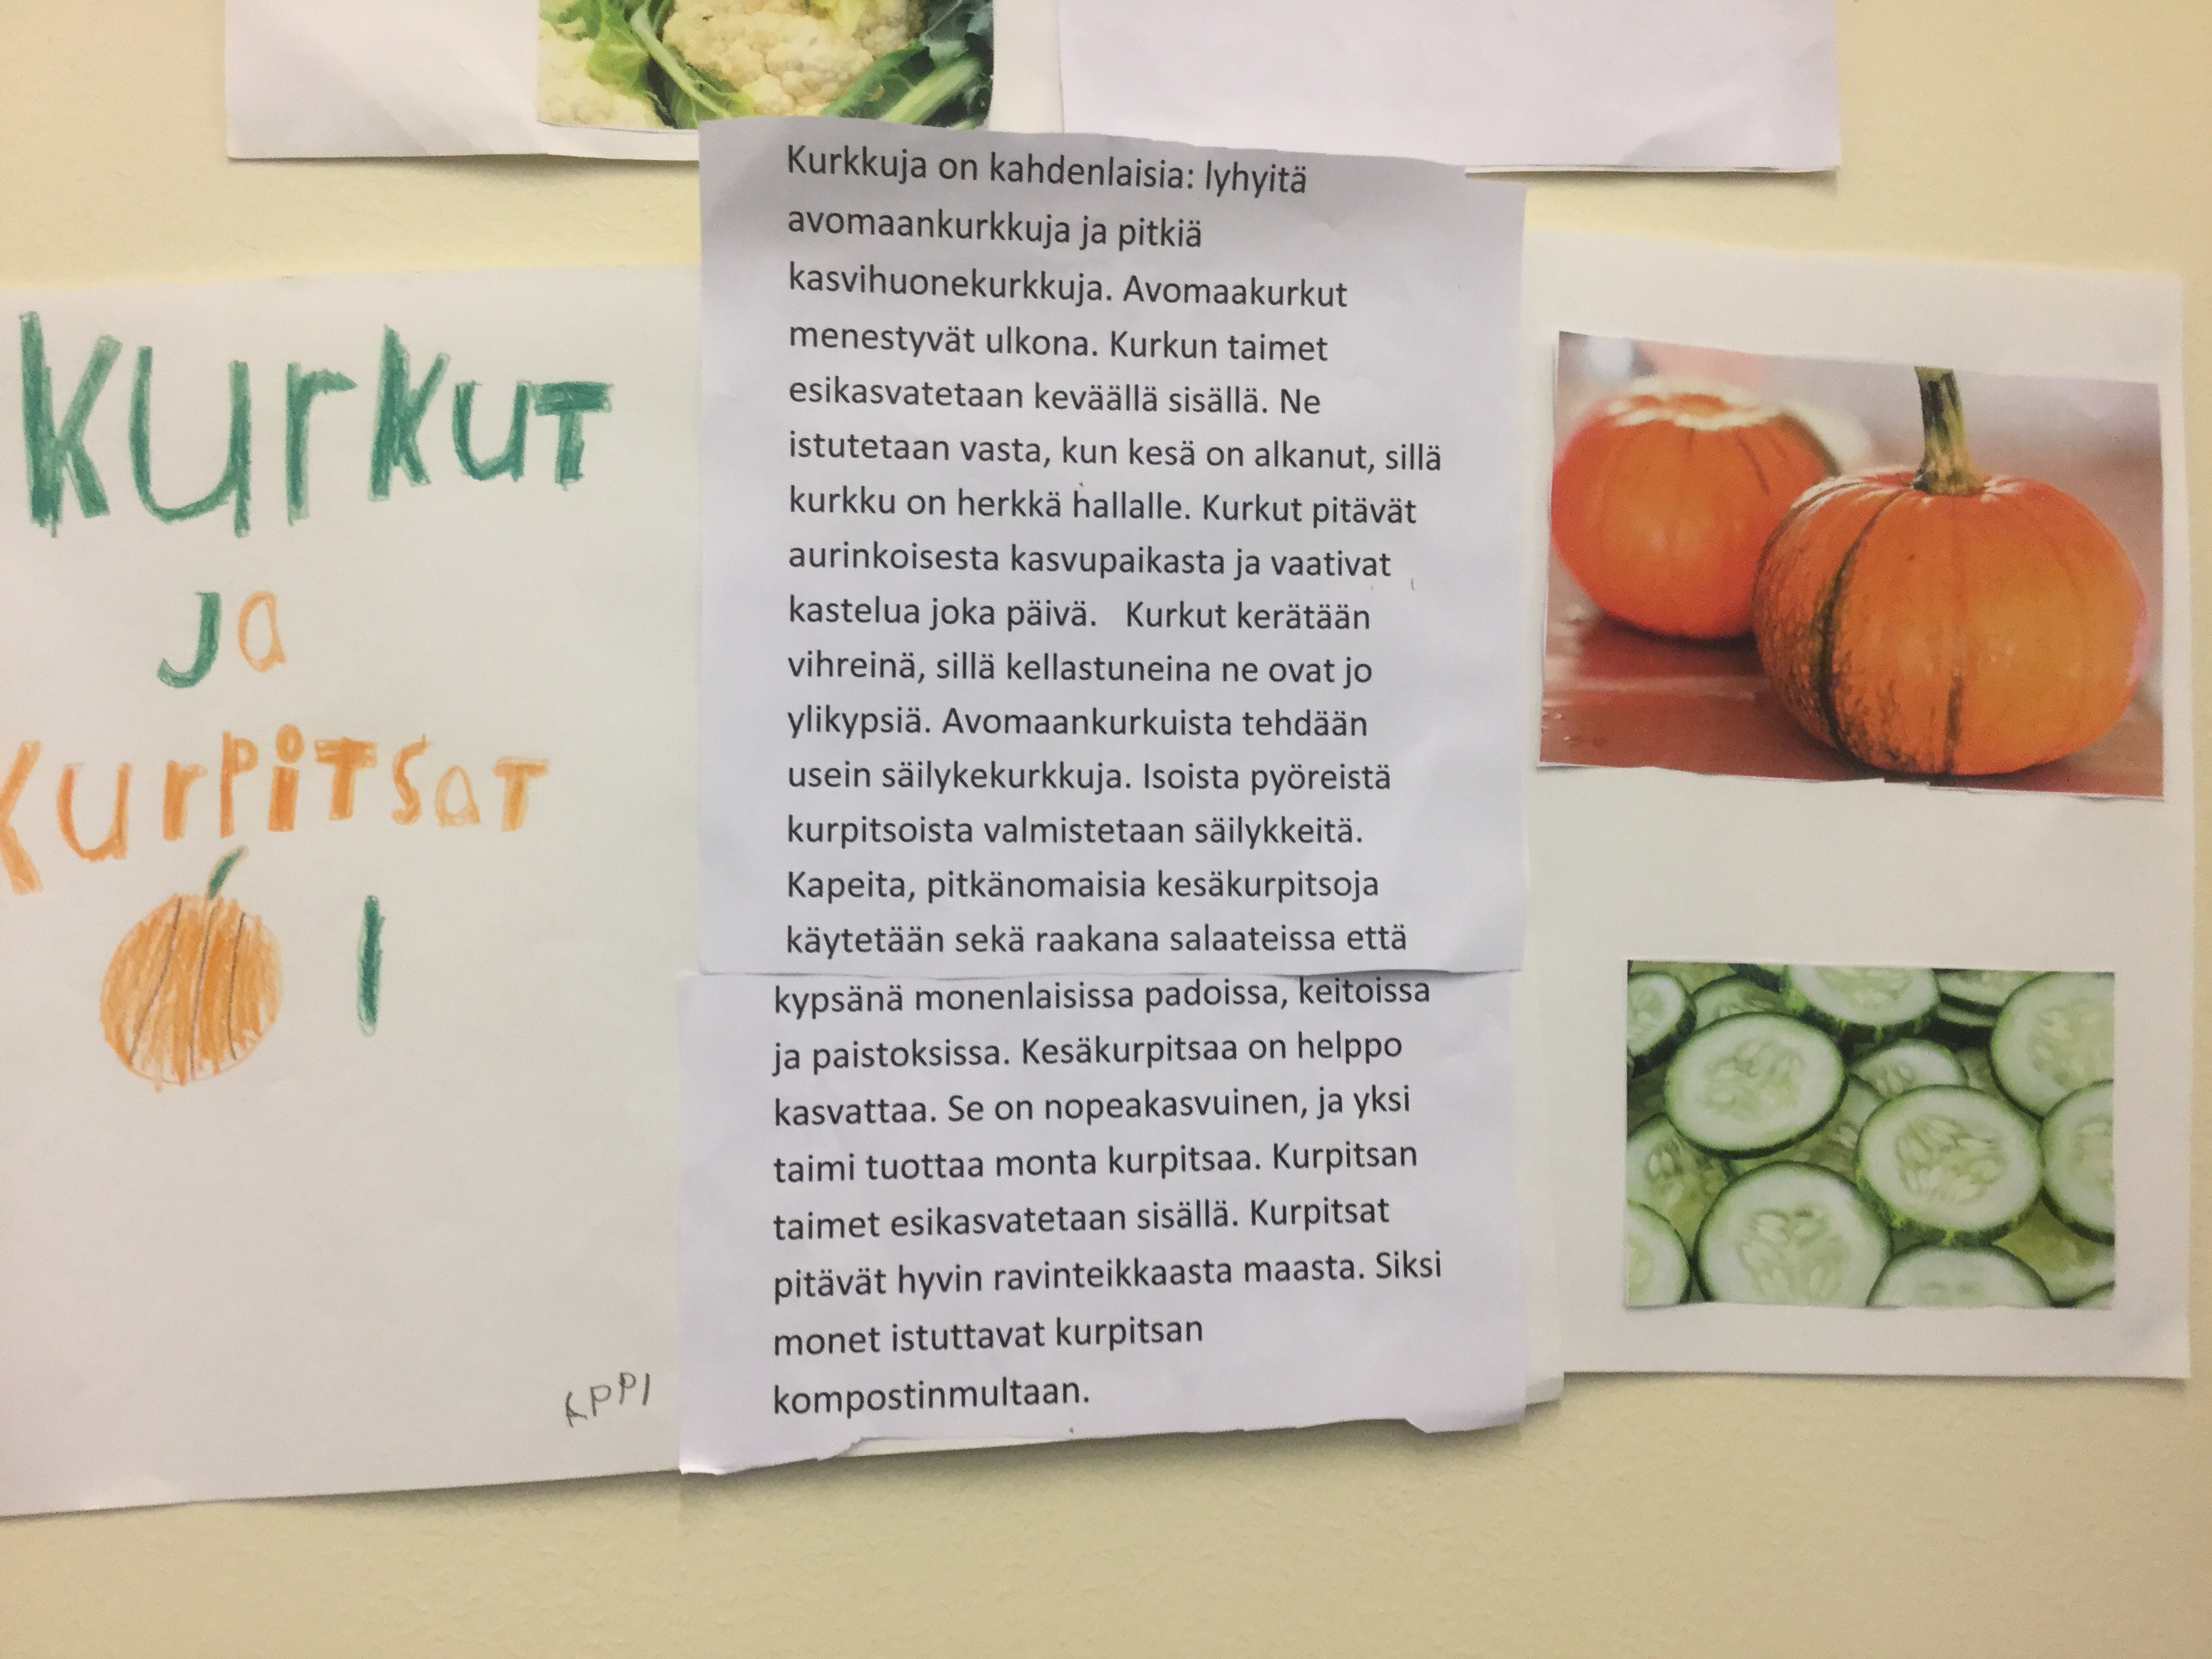 Kurkut
ja
Kurpitsat
Kurkkuja on kahdenlaisia: lyhyitä
avomaankurkkuja ja pitkiä
kasvihuonekurkkuja. Avomaakurkut
menestyvät ulkona. Kurkun taimet
esikasvatetaan keväällä sisällä. Ne
istutetaan vasta, kun kesä on alkanut, sillä
kurkku on herkkä hallalle. Kurkut pitävät
aurinkoisesta kasvupaikasta ja vaativat
kastelua joka päivä.   Kurkut kerätään
vihreinä, sillä kellastuneina ne ovat jo
ylikypsiä. Avomaankurkuista tehdään
usein säilykekurkkuja. Isoista pyöreistä
kurpitsoista valmistetaan säilykkeitä.
Kapeita, pitkänomaisia kesäkurpitsoja
käytetään sekä raakana salaateissa että
kypsänä monenlaisissa padoissa, keitoissa
ja paistoksissa. Kesäkurpitsaa on helppo
kasvattaa. Se on nopeakasvuinen, ja yksi
taimi tuottaa monta kurpitsaa. Kurpitsan
taimet esikasvatetaan sisällä. Kurpitsat
pitävät hyvin ravinteikkaasta maasta. Siksi
monet istuttavat kurpitsan
kompostinmultaan.